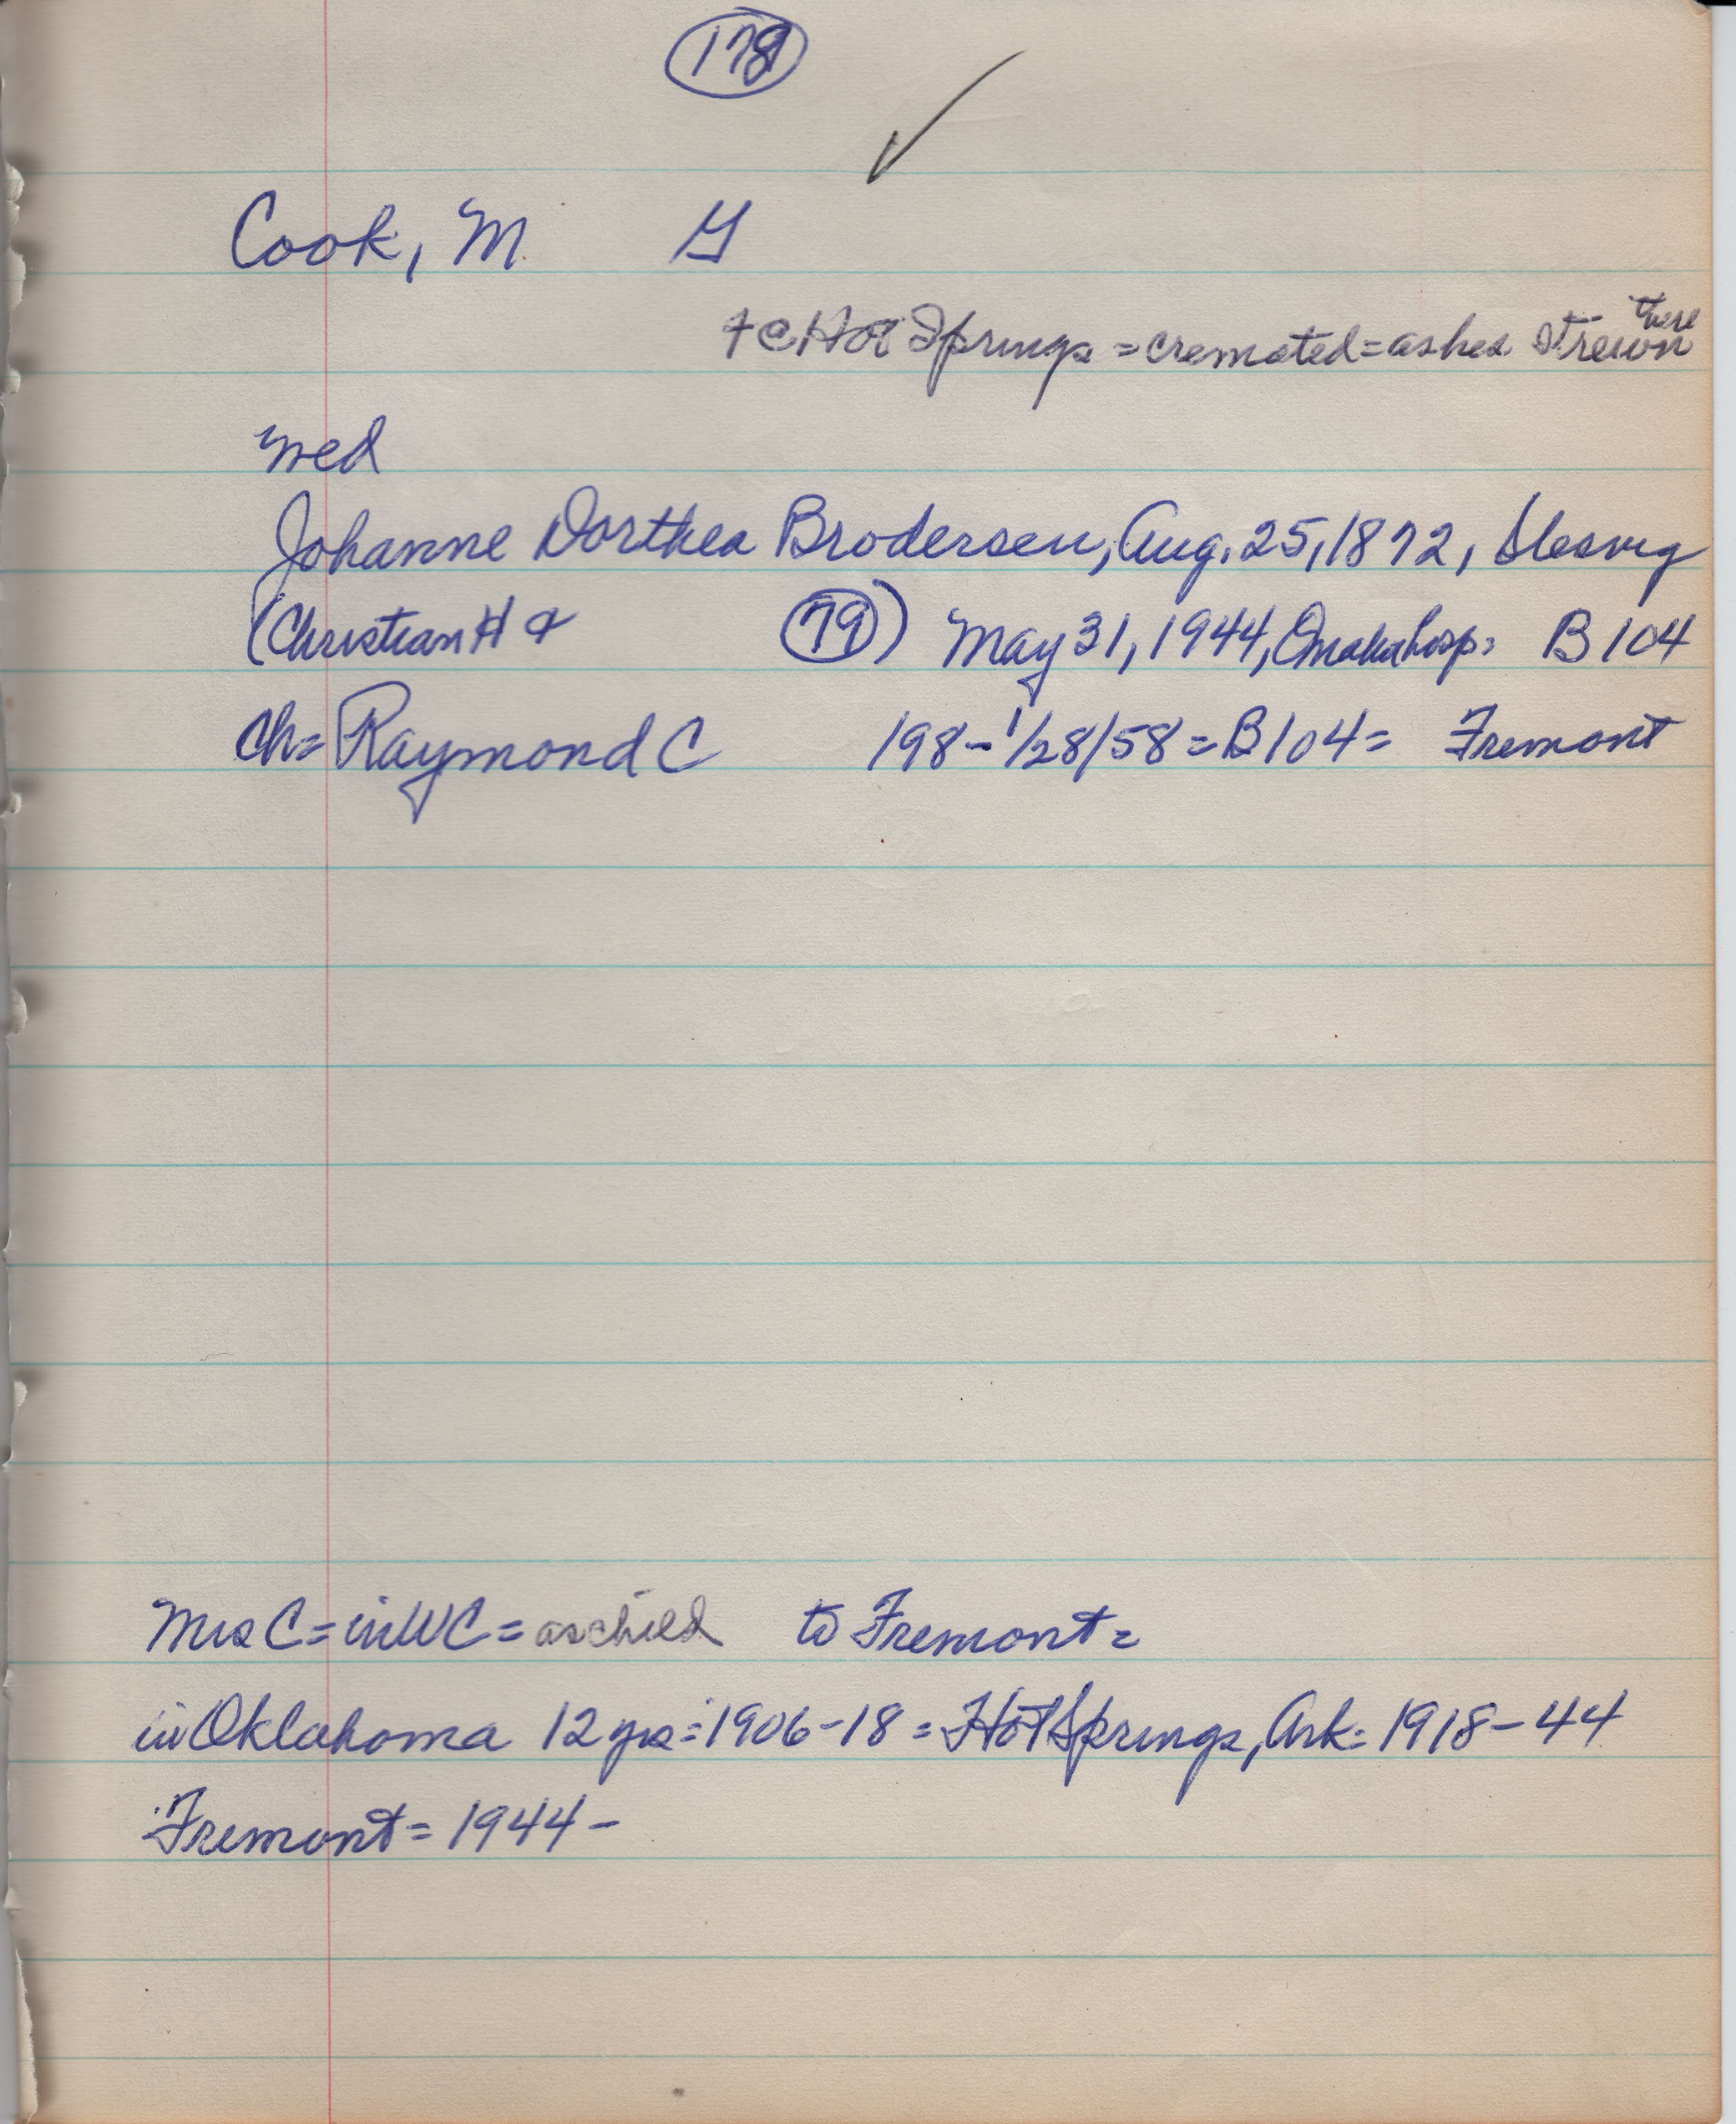 178
Cook, M G
+ @ Hot Springs = cremated = ashes strewn there
wed
Johanne Dorthea Brodersen, Aug. 25, 1872, Slesvig
(Christian H & 79) May 31, 1944, Omaha hosp = B 104
Ch = Raymond C 198 - 1/28/58 = B 104 = Fremont
Mrs C = in WC = as child to Fremont =
in Oklahoma 12 yrs = 1906-18 = Hot Springs, Ark = 1918-44
Fremont = 1944 -